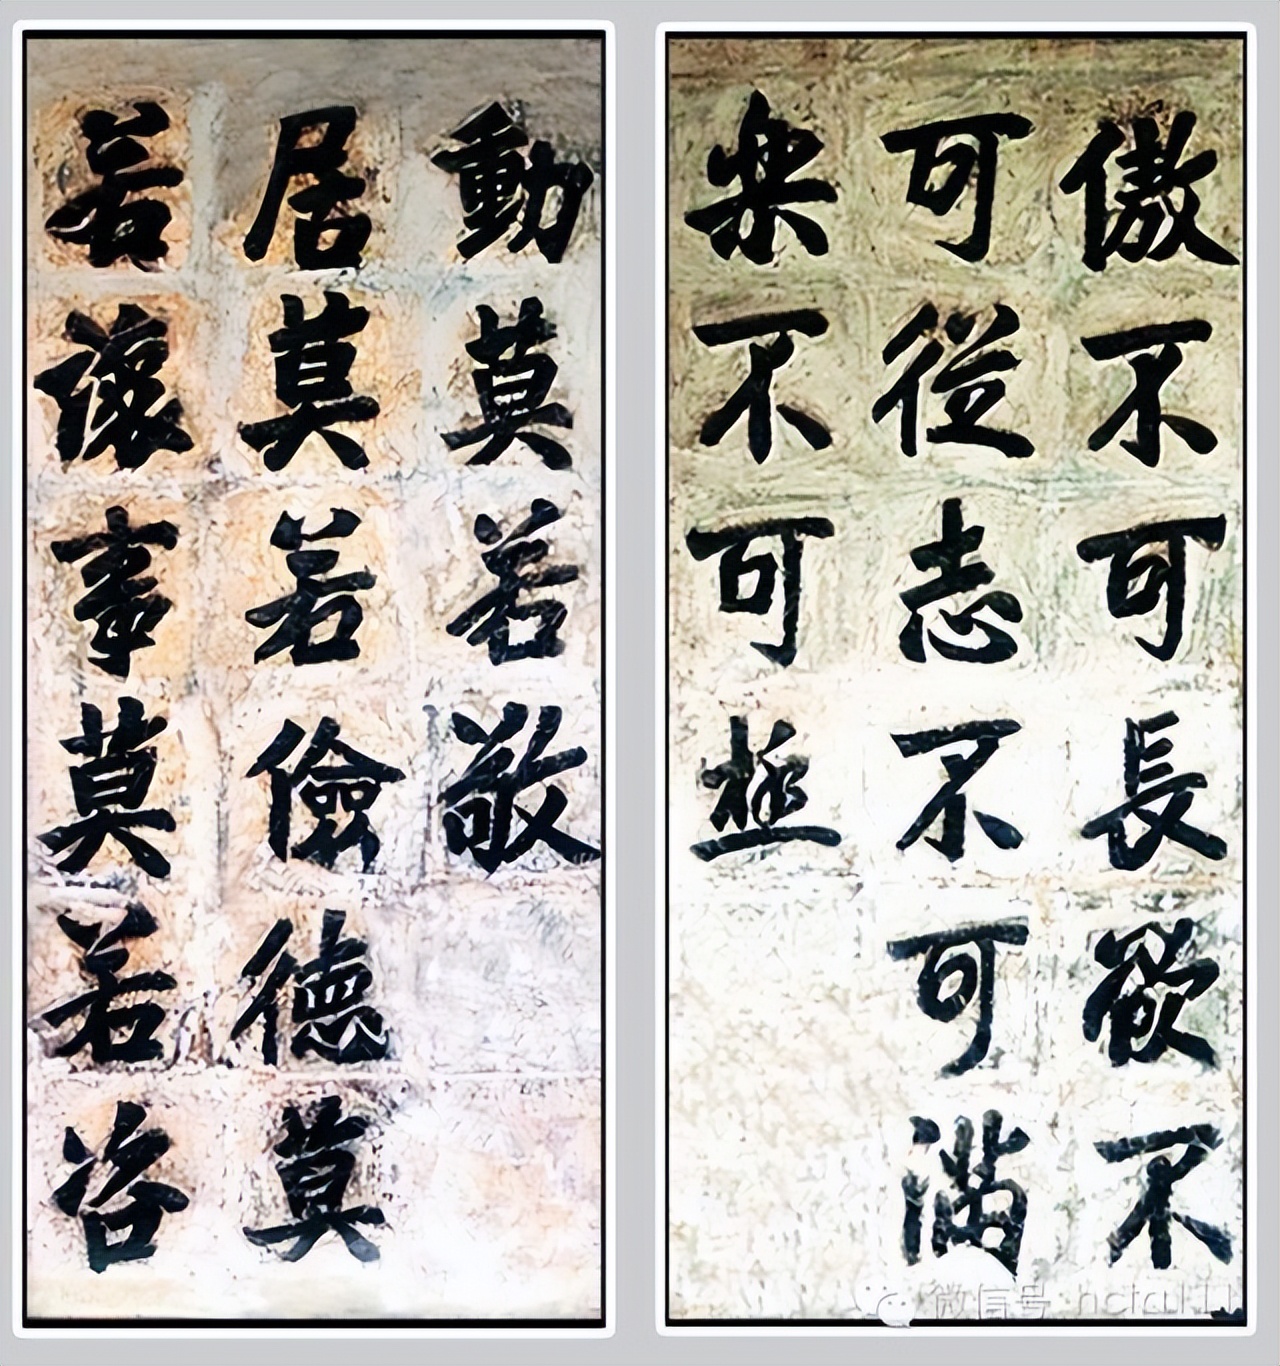 傲不可長欲不
可從志不可滿
樂不可極
動莫若敬
居莫若儉德莫
若讓事莫若咨
微信号: